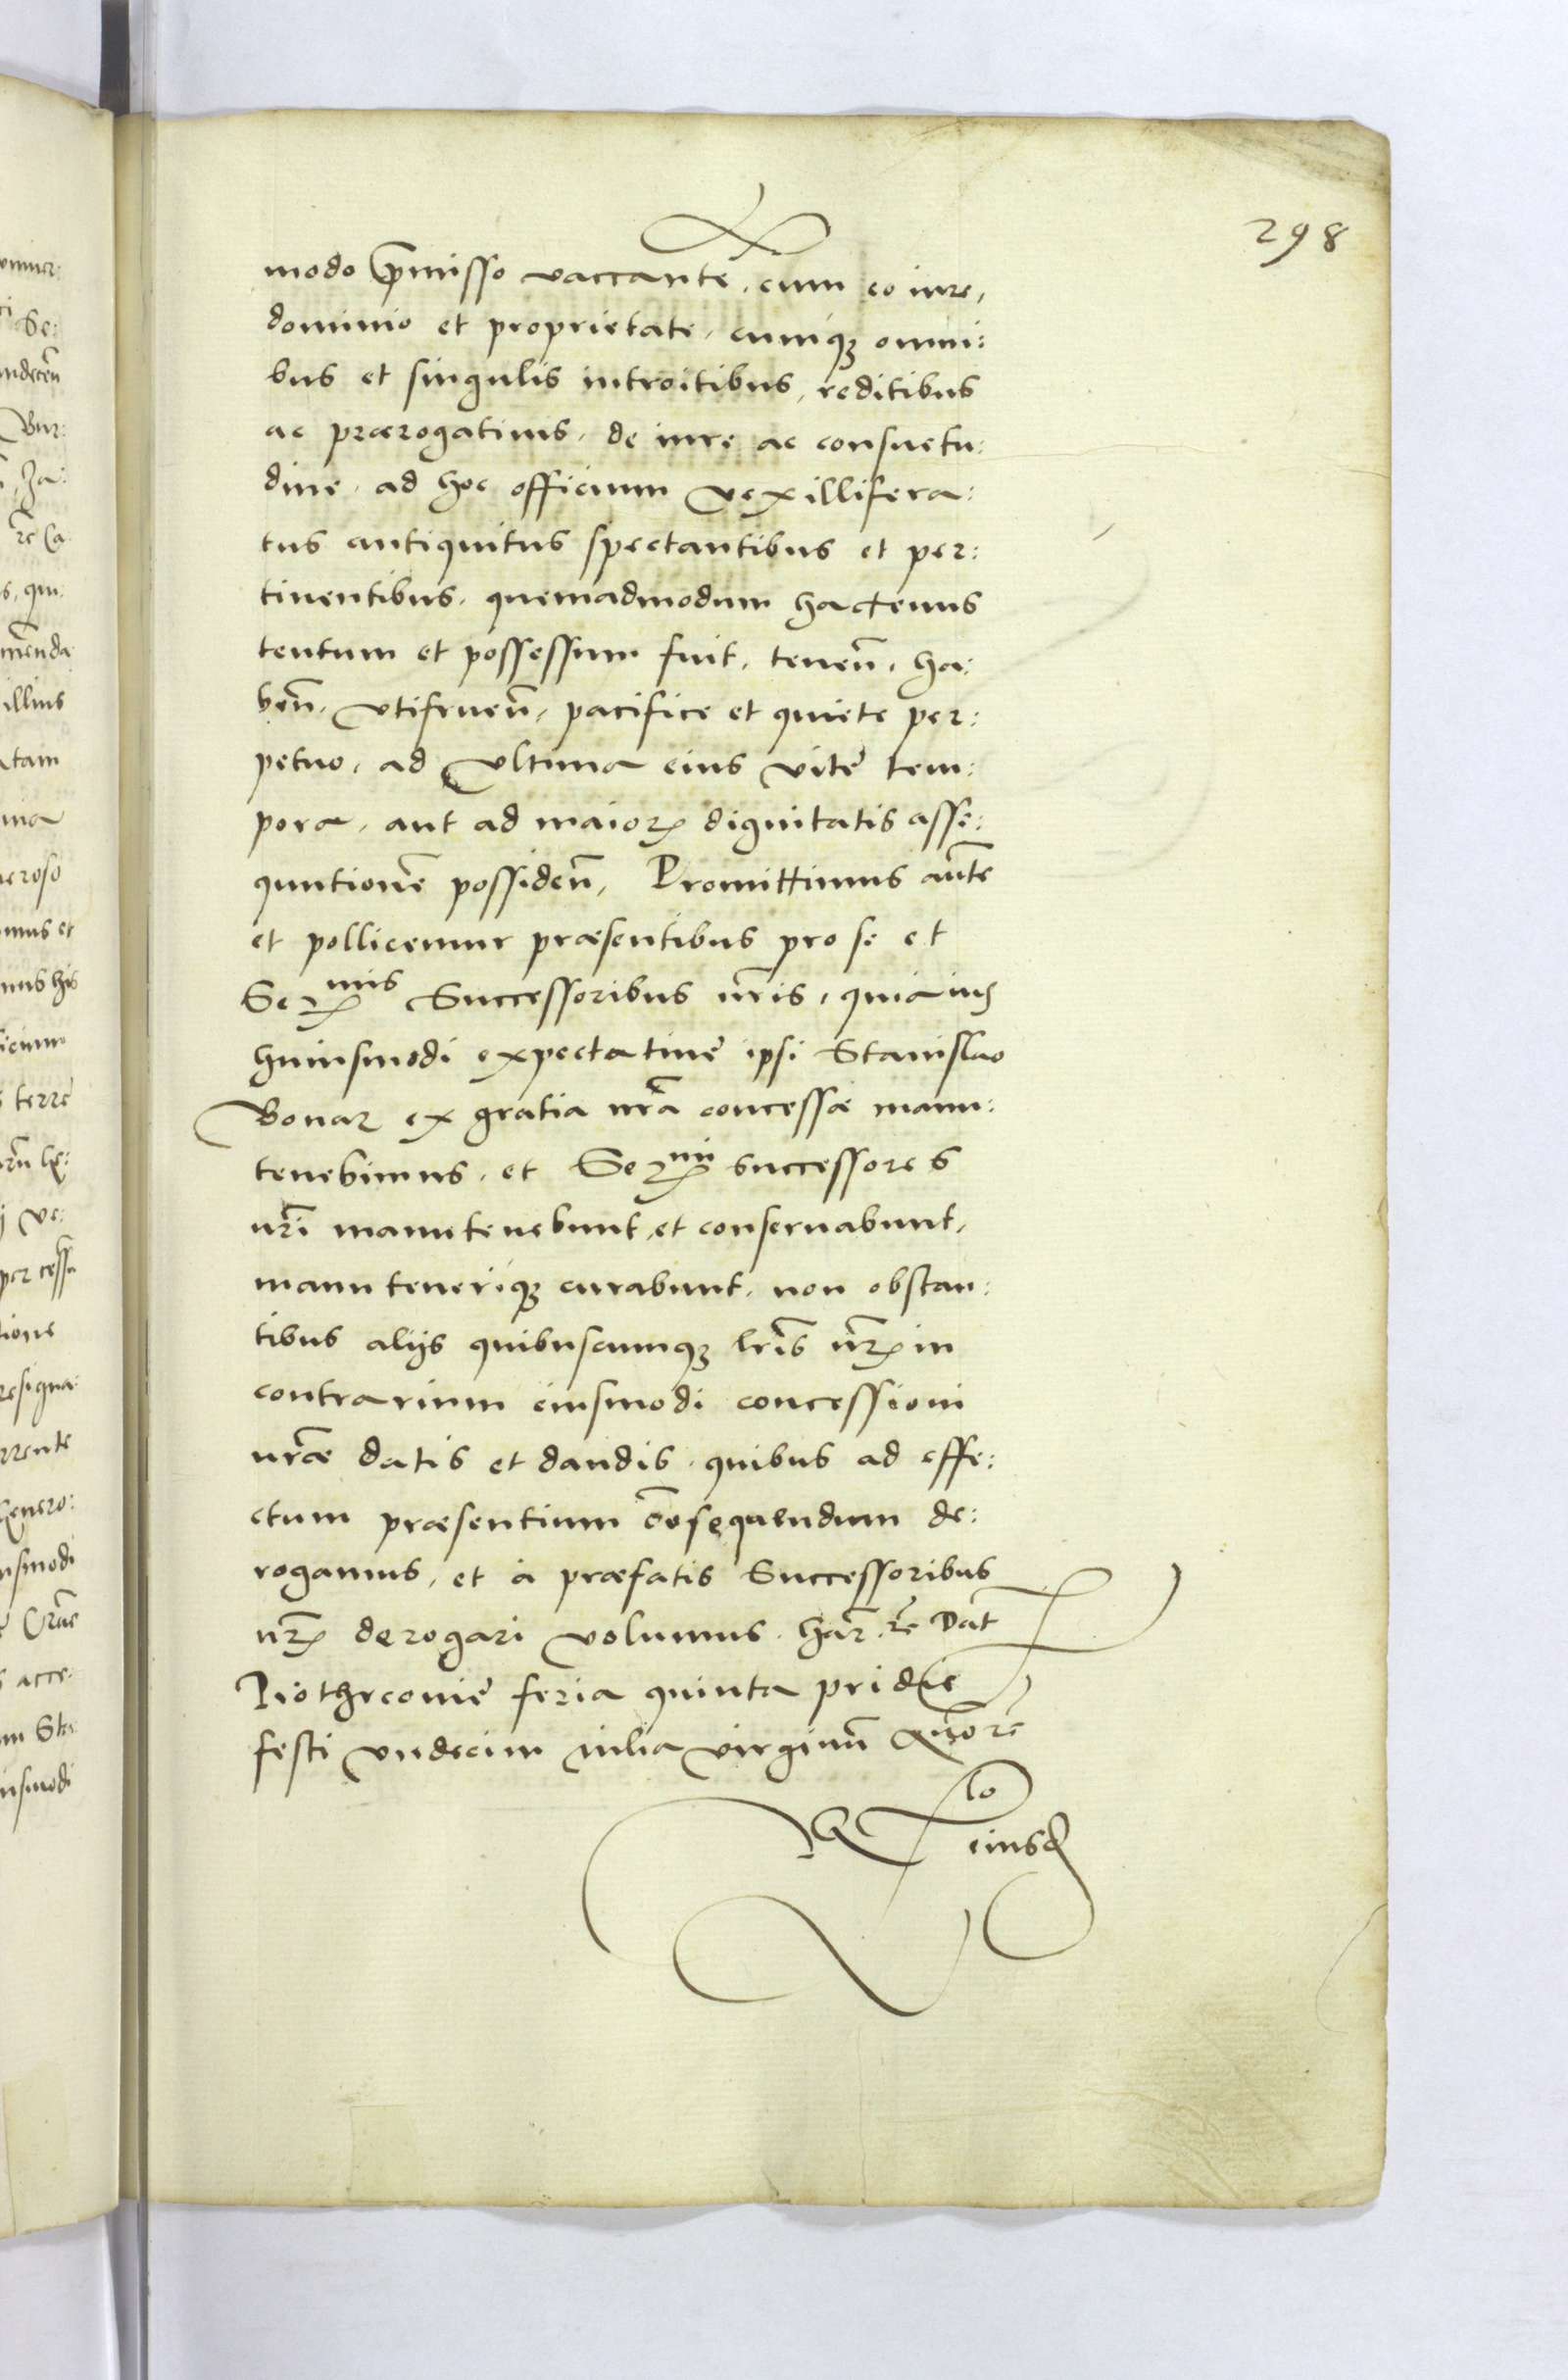 298
modo p̄misso vaccante, cum eo iure,
dominio et proprietate, cumiqꝫ omni:
bus et singulis introitibus, reditibus
ac prærogatiuis, de iure ac consuetu:
dine, ad hoc officium vexillifera:
tus antiquitus spectantibus et per:
tinentibus, quemadmodum hactenus
tentum et possessum fuit, teneñ, ha:
beñ, vtifrueñ, pacifice et quiete per:
petuo, ad vltima eius vitę tem:
pora, aut ad maioris dignitatis asse:
quutionē possideñ, Promittimus aūte
et pollicemur præsentibus pro se et
Serᵐⁱˢ Successoribus nr̄is, quia ius
huiusmodi expectatiuę ipsi Stanislao
Bonar ex gratia nr̄a concessæ manu:
tenebimus, et Serᵐⁱ successores
nr̄i manutenebunt, et conseruabunt,
manu teneriqꝫ curabunt, non obstan:
tibus alijs quibuscumqꝫ lr̄is nr̄is in
contrarium eiusmodi concessioni
nr̄æ datis et dandis, quibus ad effe:
ctum præsentium cōsequendum de:
rogamus, et à præfatis Successoribus
nr̄is derogari volumus. har̄ r̄e Dat̄
Piothrcouię feria quinta pridie
festi vndecim milia virginū
eiusd